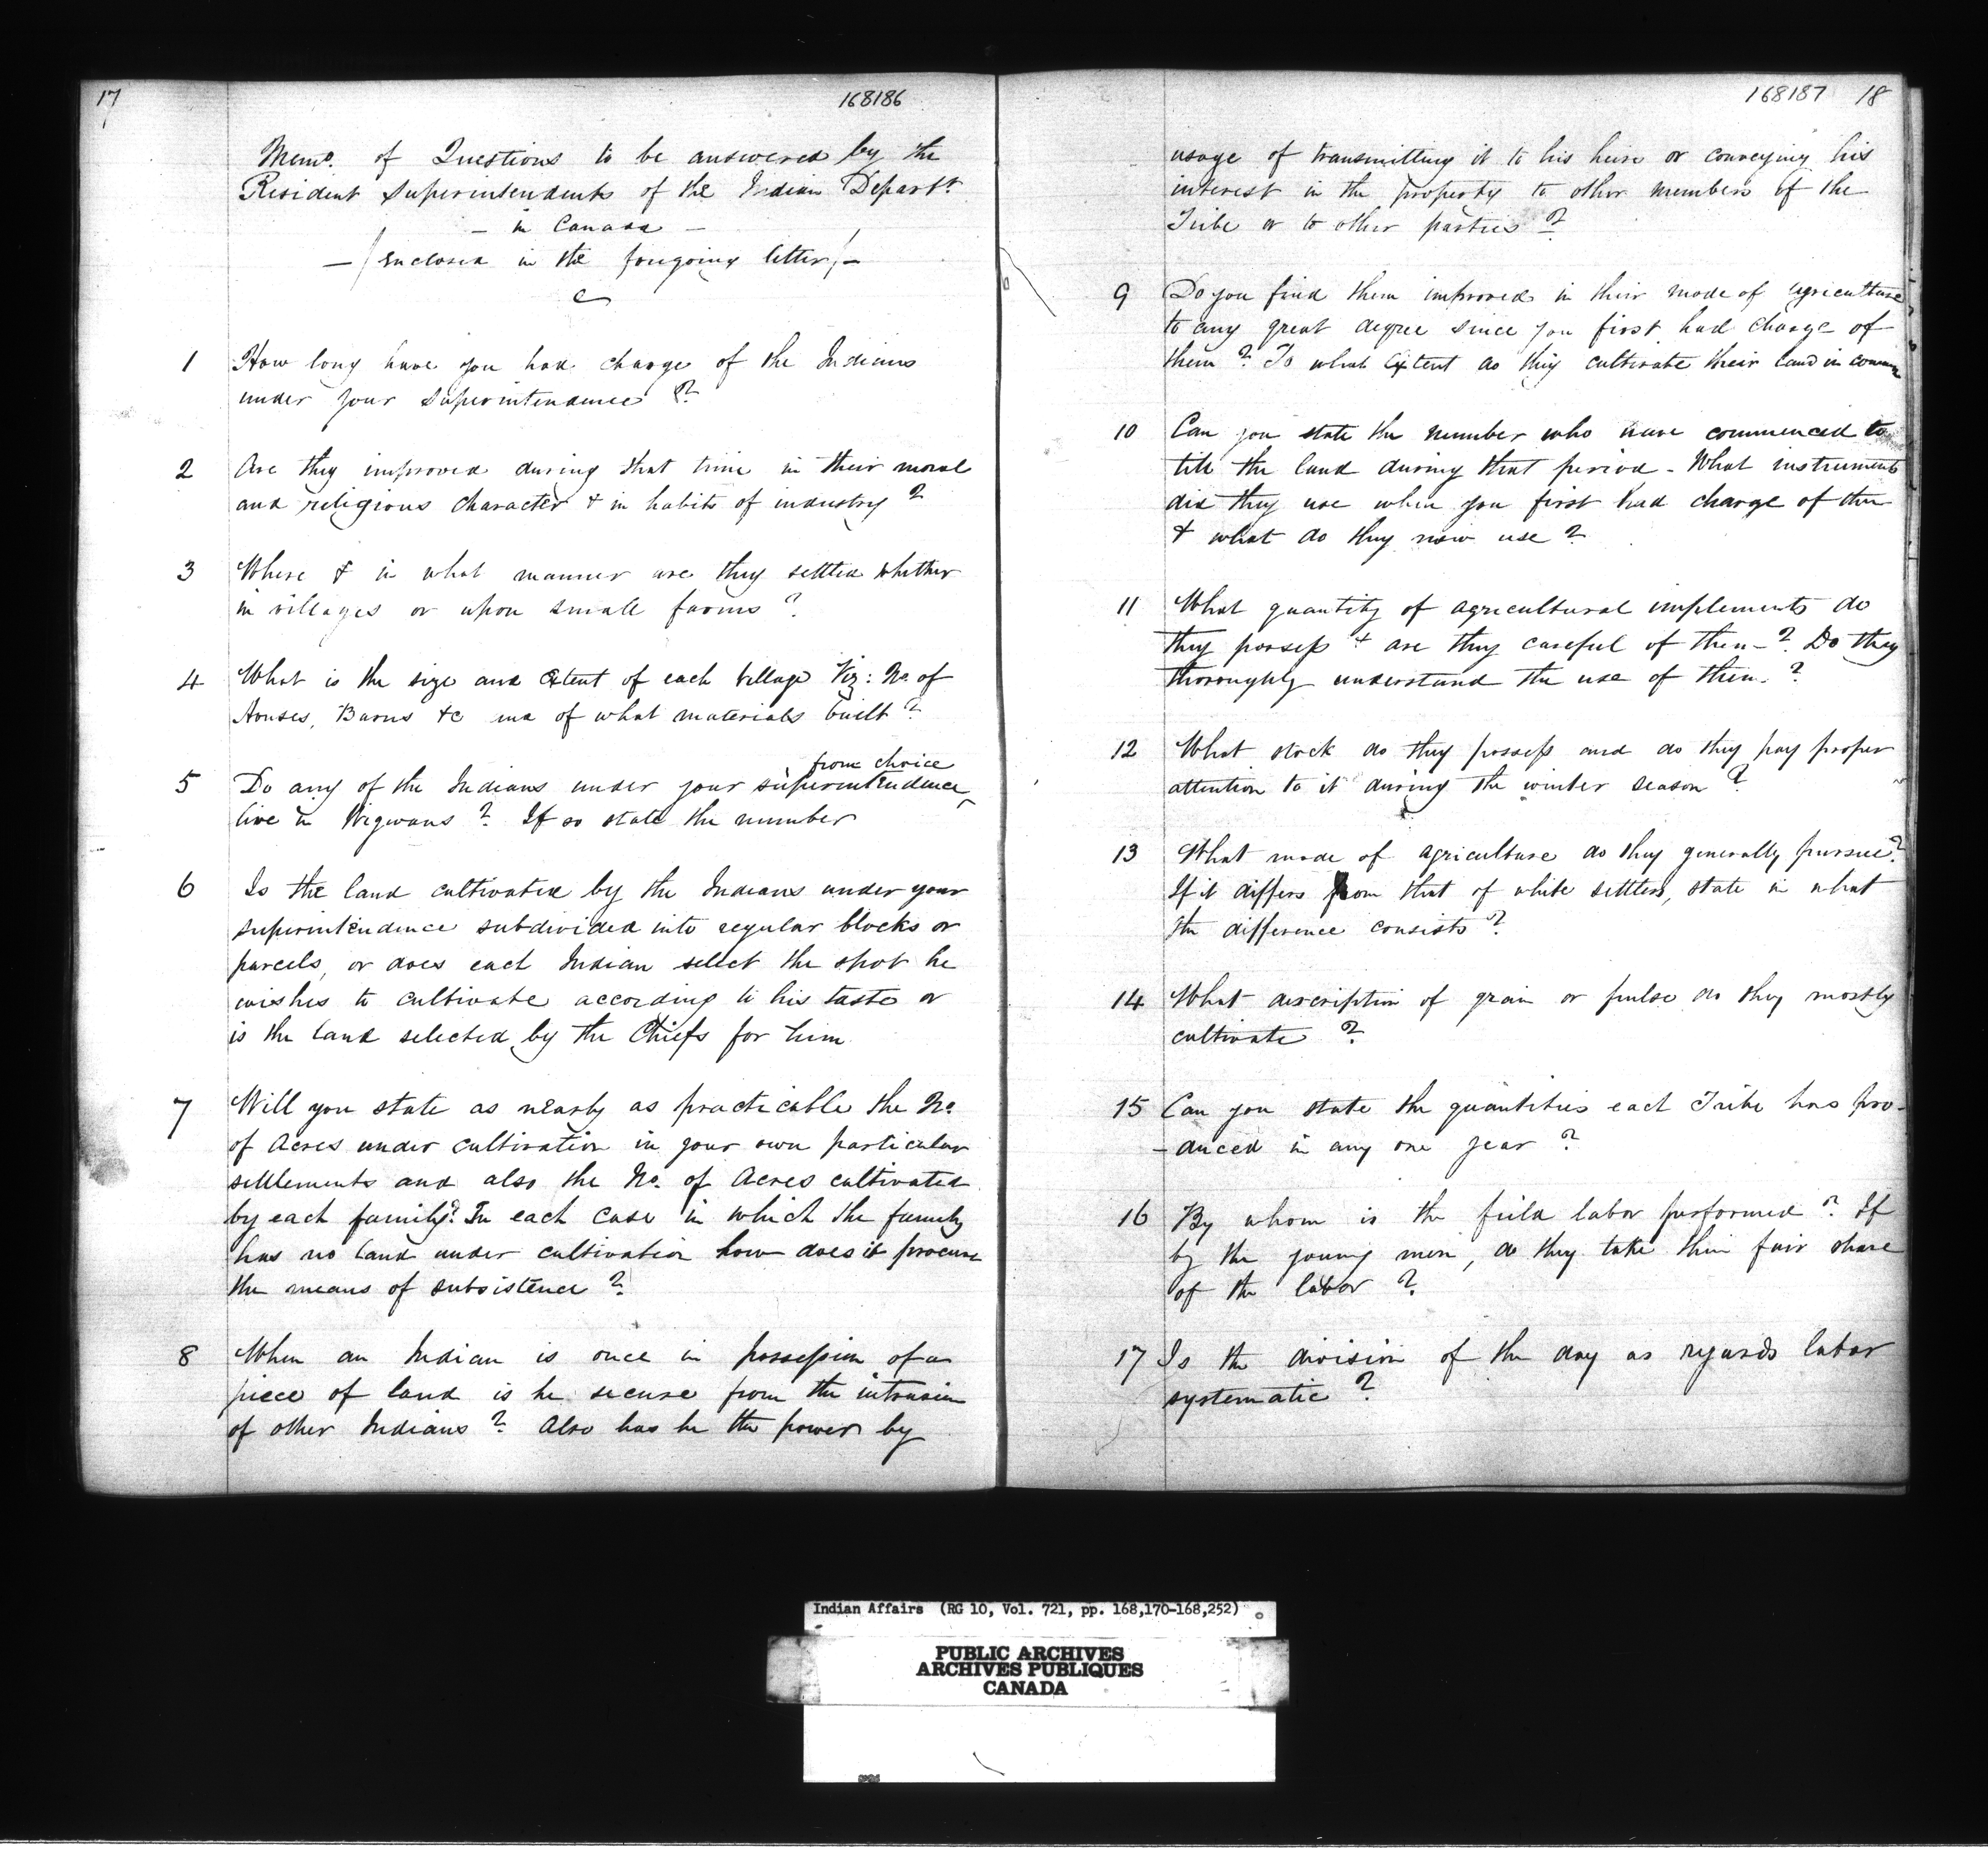 17
168186
Memo. of Questions to be answered by the
Resident Superintendents of the Indian Departt.
- in Canada -
- / enclosed in the foregoing letter / -
1 How long have you had charge of the Indians
under your Superintendence ?
2 Are they improved during that time in their moral
and religious character & in habits of industry ?
3 Where & in what manner are they settled whether
in villages or upon small farms ?
4 What is the size and extent of each village Viz: No. of
Houses, Barns &c and of what materials built ?
from choice
5 Do any of the Indians under your superintendence ‸
live in Wigwams ? If so state the number
6 Is the land cultivated by the Indians under your
superintendence subdivided into regular blocks or
parcels, or does each Indian select the spot he
wishes to cultivate according to his taste or
is the land selected by the Chiefs for him
7 Will you state as nearly as practicable the No.
of Acres under cultivation in your own particular
settlements and also the No. of Acres cultivated
by each family? In each case in which the family
has no land under cultivation how does it procure
the means of subsistence ?
8 When an Indian is once in possession of a
piece of land is he secure from the intrusion
of other Indians ? Also has he the power by
168187 18
usage of transmitting it to his heirs or conveying his
interest in the property to other members of the
Tribe or to other parties ?
9 Do you find them improved in their mode of agriculture
to any great degree since you first had charge of
them ? To what extent do they cultivate their land in common
10 Can you state the number who have commenced to
till the land during that period - What instruments
did they use when you first had charge of them
& what do they now use ?
11 What quantity of agricultural implements do
they possess & are they careful of them - ? Do they
thoroughly understand the use of them. ?
12 What stock do they possess and do they pay proper
attention to it during the winter season ?
13 What mode of agriculture do they generally pursue ?
If it differs from that of white settlers, state in what
the difference consists ?
14 What description of grain or pulse do they mostly
cultivate ?
15 Can you state the quantities each Tribe has pro-
-duced in any one year ?
16 By whom is the field labor performed ? If
by the young men, do they take their fair share
of the labor ?
17 Is the division of the day as regards labor
systematic ?
Indian Affairs (RG 10, Vol. 721, pp. 168,170-168,252)
PUBLIC ARCHIVES
ARCHIVES PUBLIQUES
CANADA